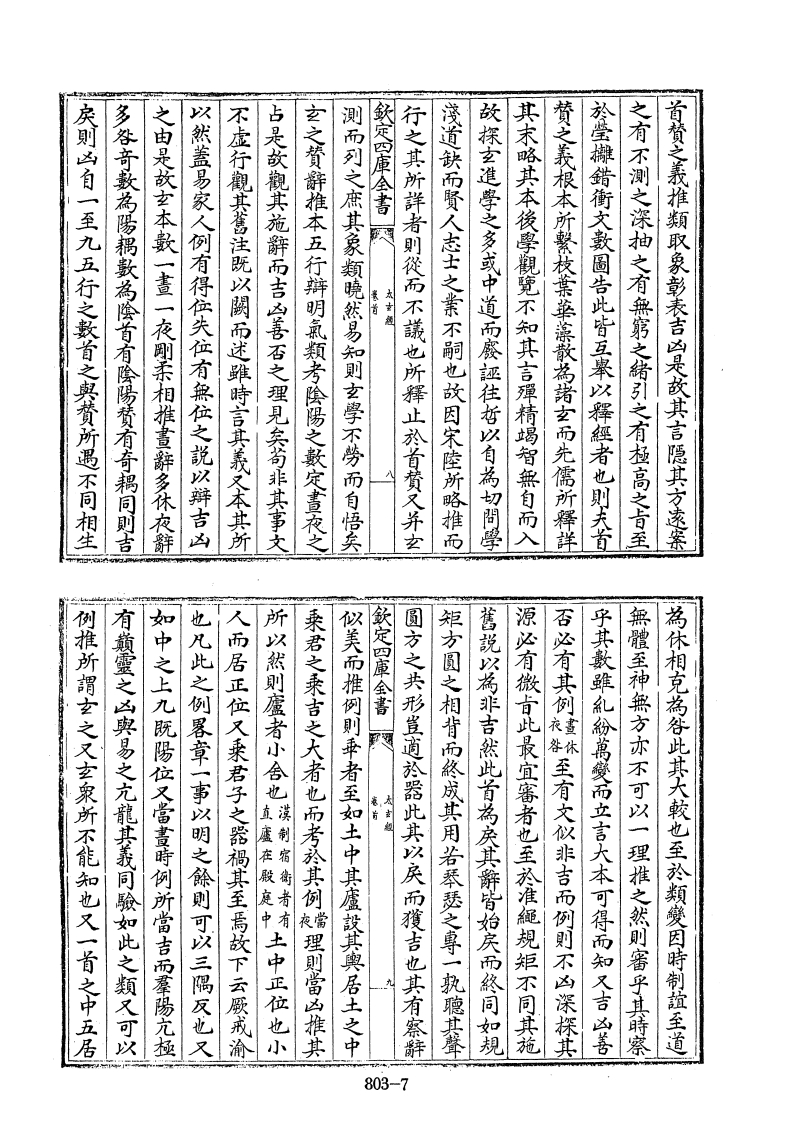 首贊之義推類取象彰表吉凶是故其言隱其方逺案
之有不測之深抽之有無窮之緒引之有極高之㫖至
於瑩攡錯衝文數圖告此皆互舉以釋經者也則夫首
贊之義根本所繫枝葉華藻散為諸玄而先儒所釋詳
其末略其本後學觀覽不知其言殫精竭智無自而入
故探玄進學之多或中道而廢誣往哲以自為切問學
淺道缺而賢人志士之業不嗣也故因宋陸所略推而
行之其所詳者則從而不議也所釋止於首贊又并玄
欽定四庫全書
太玄經
卷首
八
測而列之庶其象類曉然易知則玄學不勞而自悟矣
玄之贊辭推本五行辯明氣類考陰陽之數定晝夜之
占是故觀其施辭而吉凶善否之理見矣苟非其事文
不虛行觀其舊注既以闕而述雖時言其義又本其所
以然蓋易家人例有得位失位有無位之説以辯吉凶
之由是故玄本數一晝一夜剛柔相推晝辭多休夜辭
多咎竒數為陽耦數為陰首有陰陽贊有奇耦同則吉
戾則凶自一至九五行之數首之與贊所遇不同相生
為休相克為咎此其大較也至於類變因時制誼至道
無體至神無方亦不可以一理推之然則審乎其時察
乎其數雖糺紛萬變而立言大本可得而知又吉凶善
否必有其例晝休夜咎至有文似非吉而例則不凶深探其
源必有微㫖此最宜審者也至於准繩規矩不同其施
舊説以為非吉然此首為戾其辭皆始戾而終同如規
矩方圓之相背而終成其用若琴瑟之專一孰聽其聲
圓方之共形豈適於器此其以戾而獲吉也其有察辭
欽定四庫全書
太玄經
卷首
九
似美而推例則乖者至如土中其廬設其輿居土之中
乘君之乘吉之大者也而考於其例當夜理則當凶推其
所以然則廬者小舍也漢制宿衛者有直廬在殿庭中土中正位也小
人而居正位又乘君子之器禍其至焉故下云厥戒渝
也凡此之例畧章一事以明之餘則可以三隅反也又
如中之上九既陽位又當晝時例所當吉而羣陽亢極
有巔靈之凶與易之亢龍其義同驗如此之類又可以
例推所謂玄之又玄衆所不能知也又一首之中五居
803-7